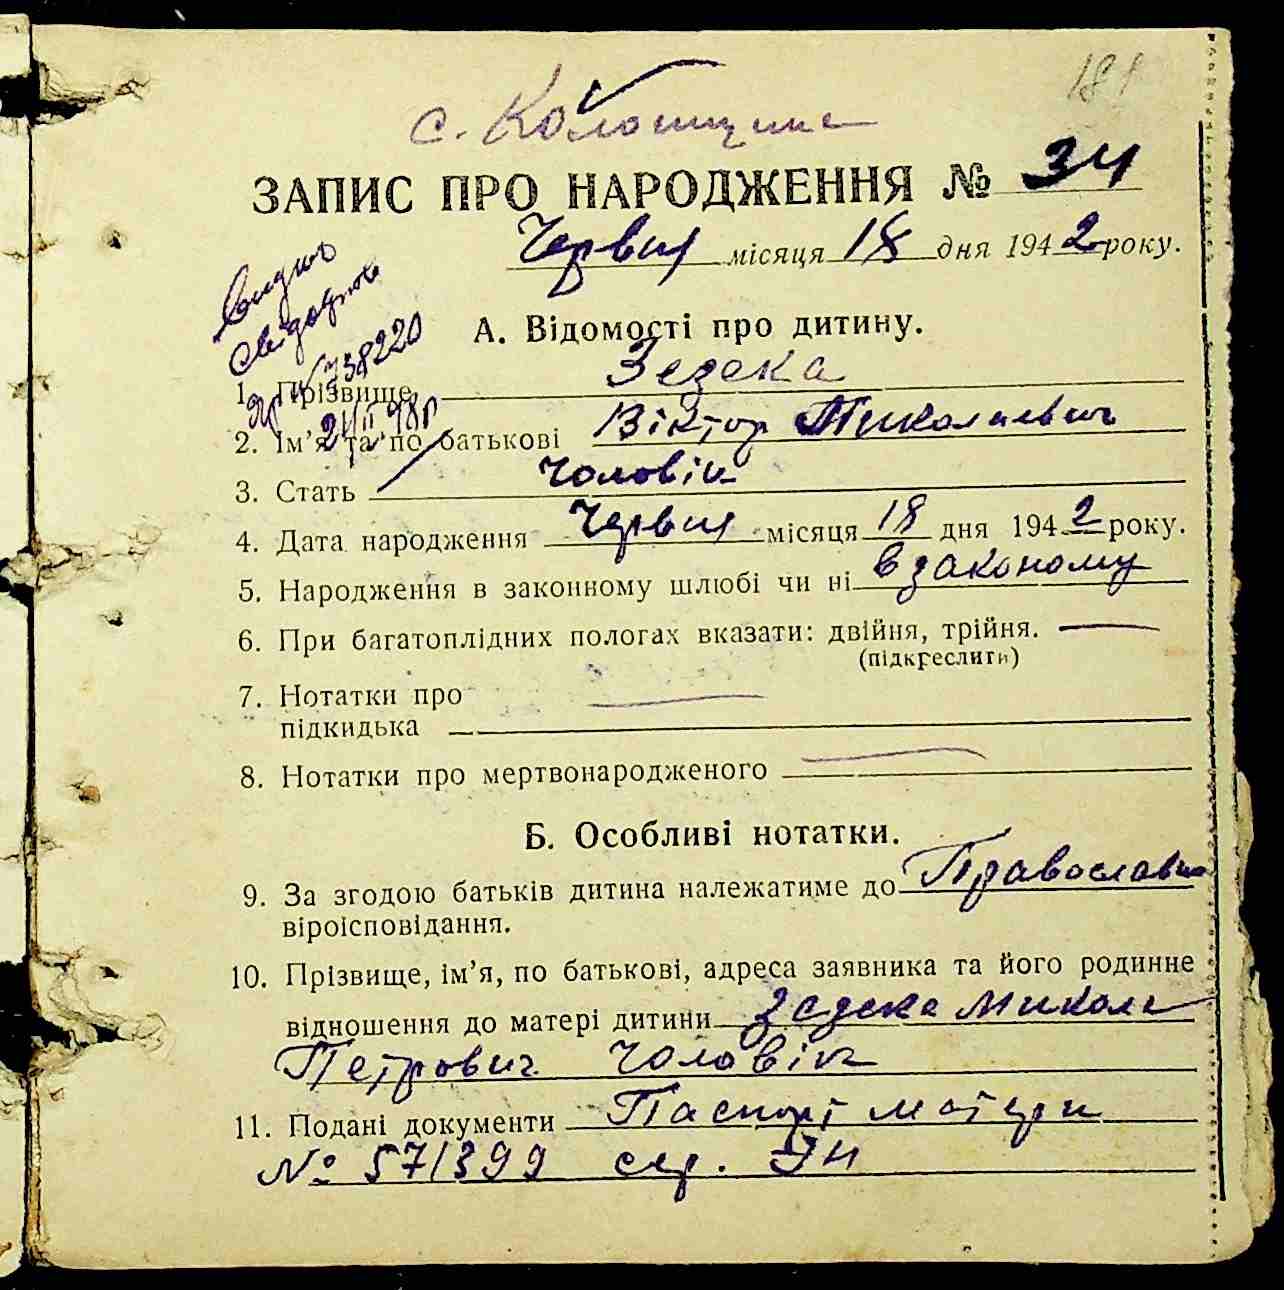 181
с. Колонщина
ЗАПИС ПРО НАРОДЖЕННЯ № 34
Червня місяця 18 дня 1942 року.
Видано
свідоцтво
738220
А. Відомості про дитину.
1. Прізвище Зезека
2. Ім'я та по батькові Віктор Миколаевич
3. Стать Чоловік
4. Дата народження Червня місяця 18 дня 1942 року.
5. Народження в законному шлюбі чи ні в закономy
6. При багатоплідних пологах вказати: двійня, трійня. —
(підкреслити)
7. Нотатки про
підкидька —
8. Нотатки про мертвонародженого —
Б. Особливі нотатки.
9. За згодою батьків дитина належатиме до Православн
віроісповідання.
10. Прізвище, ім'я, по батькові, адреса заявника та його родинне
відношення до матері дитини Зезека Микола
Петрович Чоловік
11. Подані документи Паспорт матери
№ 571399 сер.